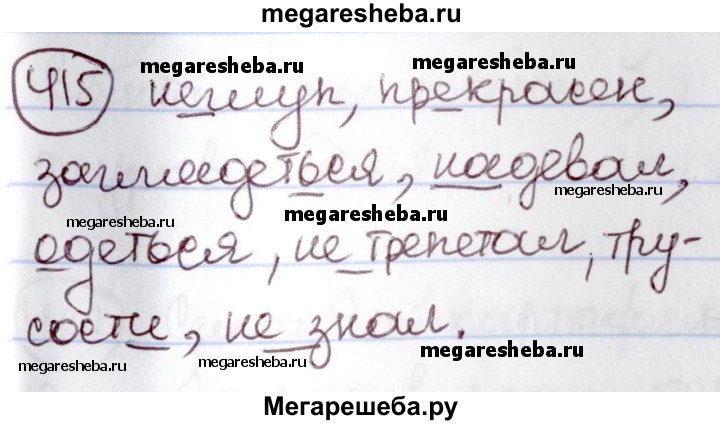 megaresheba.ru
415 неглуп, прекрасен,
megaresheba.ru megaresheba.ru
заглядеться, надевал,
megaresheba.ru megaresheba.ru megaresheba.ru
одеться, не трепетал, тру-
сости, не знал.
megaresheba.ru megaresheba.ru megaresheba.ru
Мегарешеба.ру